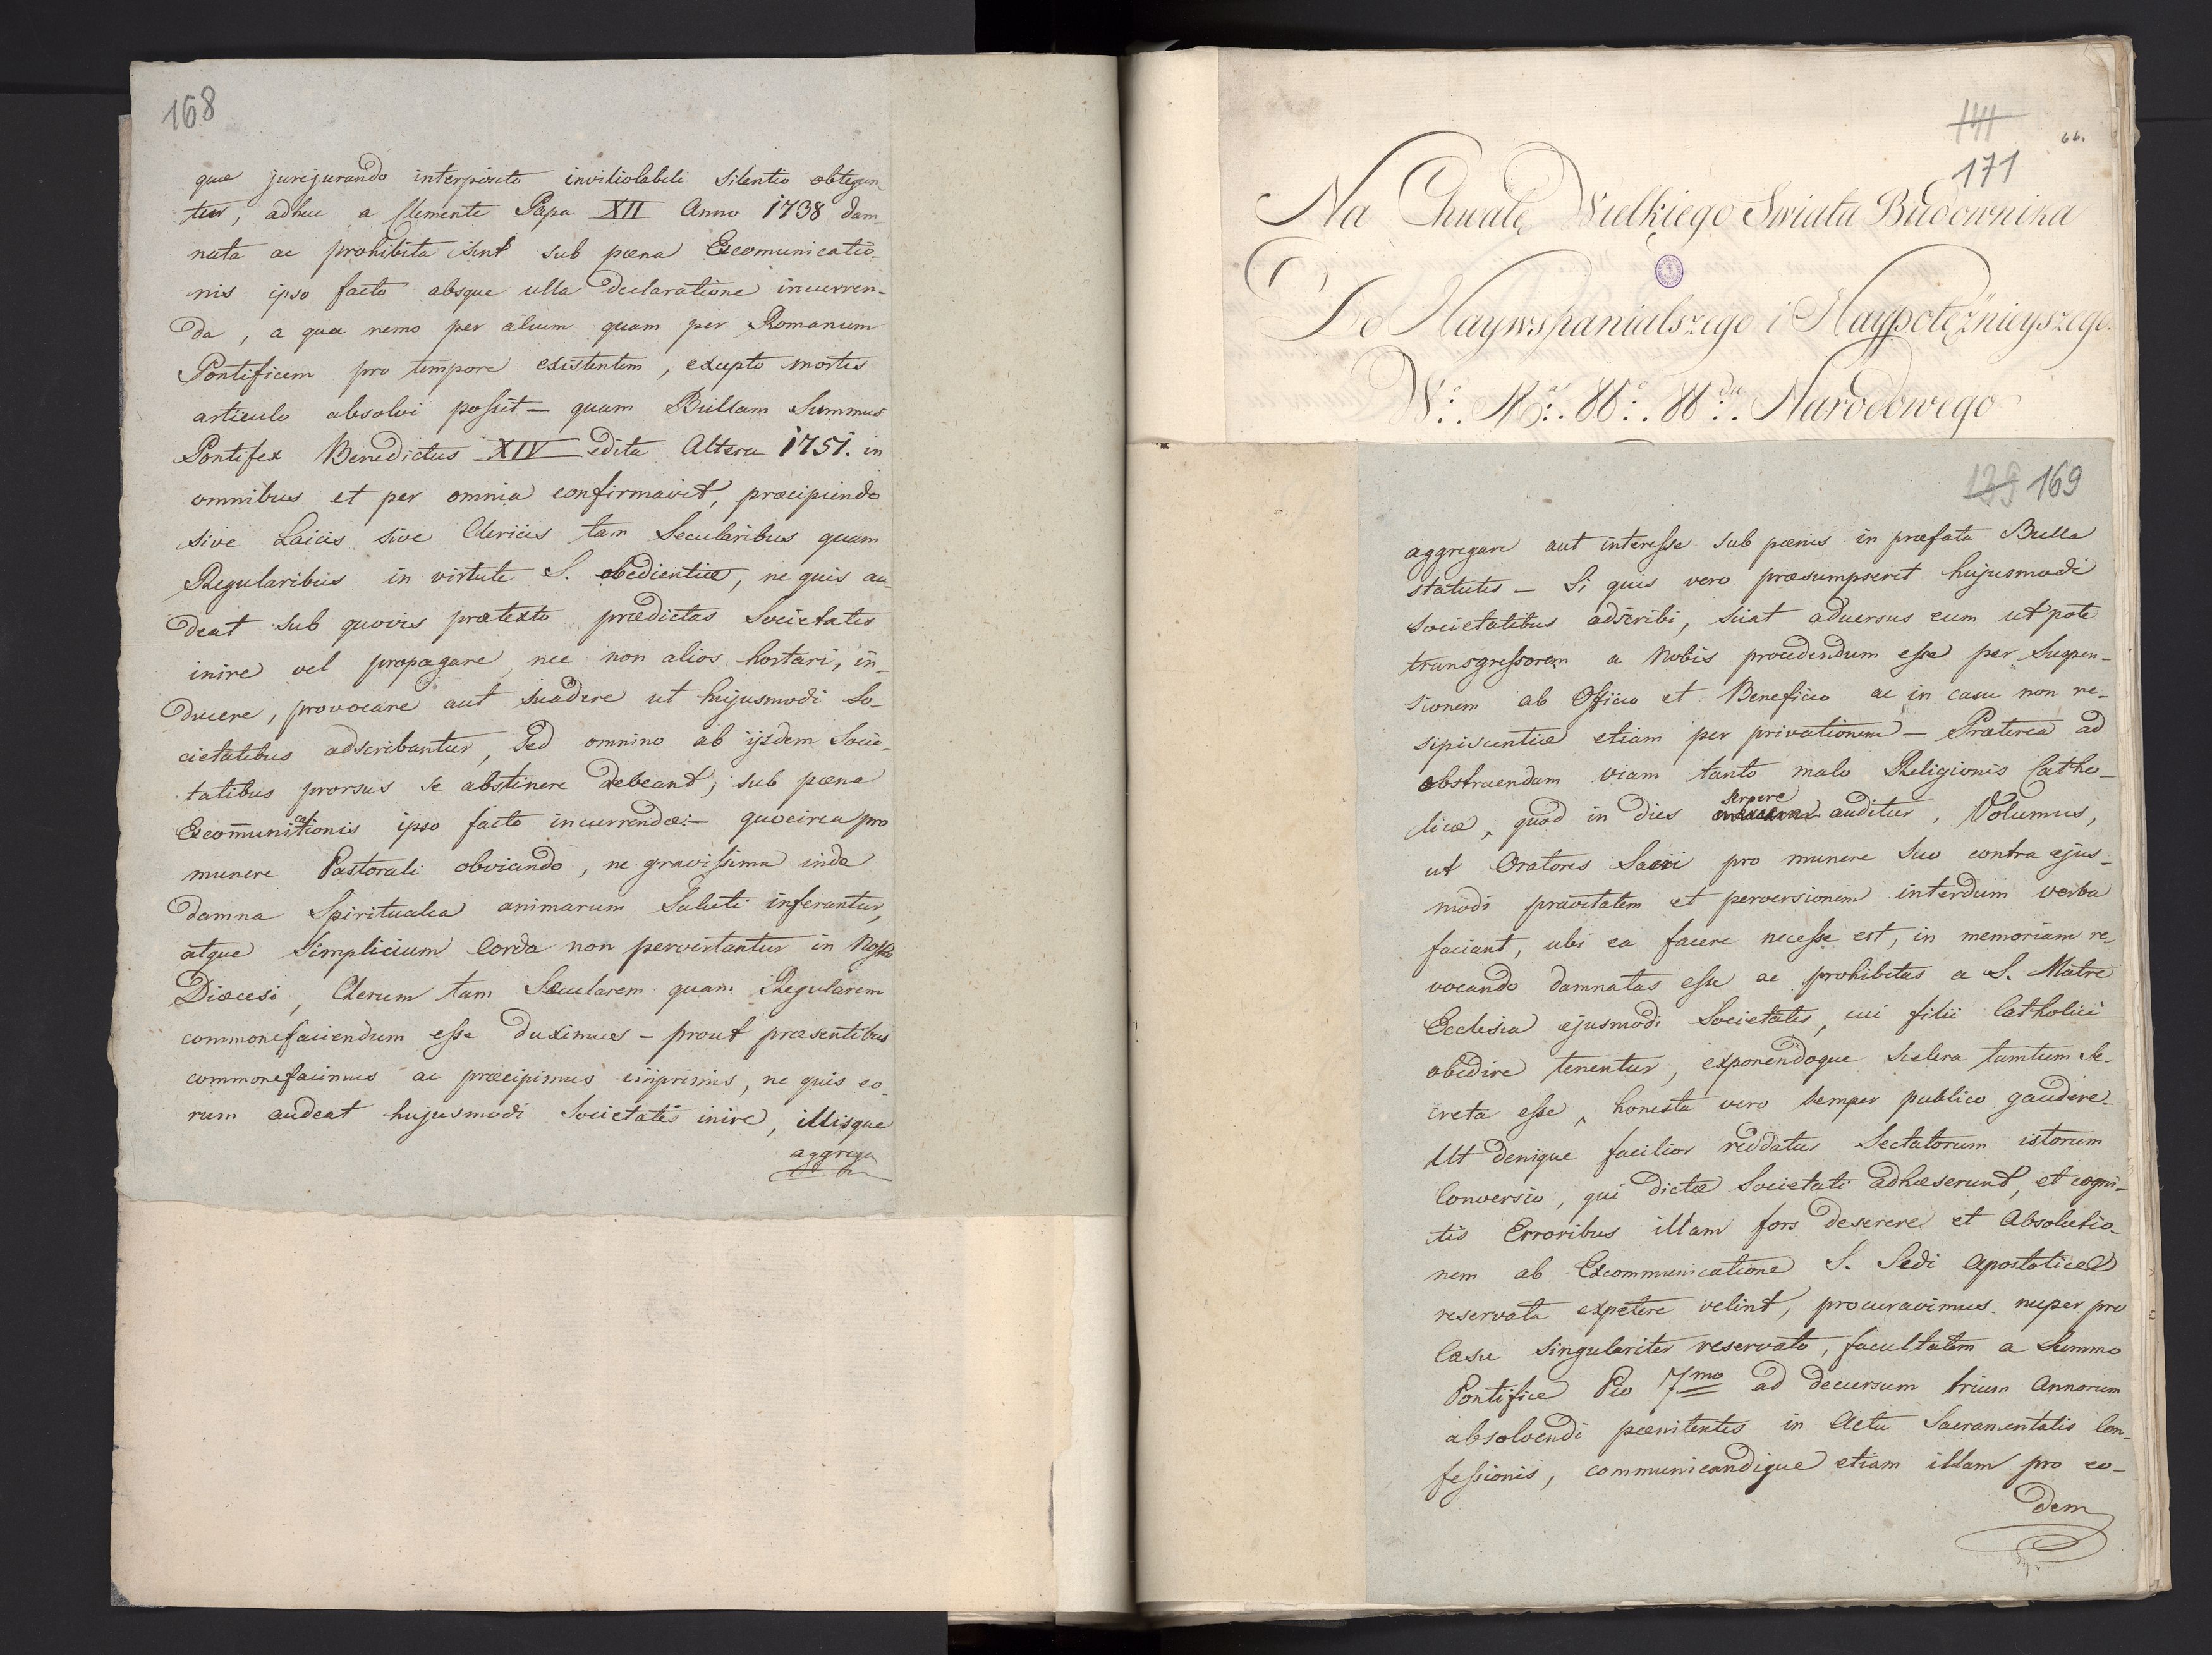 168
quæ jurejurando interposito invitiolabili Silentio obtegun-
tur, adhuc a Clemente Papa XII Anno 1738 dam-
nata ac prohibita sint sub pœna Excomunicatio-
nis ipso facto absque ulla declaratione incurren-
da, a qua nemo per alium quam per Romanum
Pontificem pro tempore existentem, excepto mortis
articulo absolvi possit — quam Bullam Summus
Pontifex Benedictus XIV edita Altera 1751. in
omnibus et per omnia confirmavit, præcipiendo
sive Laicis sive Clericis tam Secularibus quam
Regularibus in virtute S. obedientiæ, ne quis au-
deat sub quovis prætexto prædictas Societates
inire vel propagare, nec non alios hortari, in-
ducere, provocare aut suadere ut hujusmodi So-
cietatibus adscribantur, Sed omnino ab ijsdem Socie-
tatibus prorsus se abstinere debeant, sub pœna
Excom̄unicationis ipso facto incurrendæ:— quocirca pro
munere Pastorali obviando, ne gravissima inde
damna Spiritualia animarum Saluti inferantur,
atque Simplicium Corda non pervertantur in Nostra
Diœcesi, Clerum tam Sæcularem quam Regularem
commonefaciendum esse duximus — prout præsentibus
commonefacimus ac præcipimus imprimis, ne quis eo-
rum audeat hujusmodi Societates inire, illisque
aggrega
141
66.
171
Na Chwałę Wielkiego Swiata Budownika
Do Naywspanialszego i Naypotężnieyszego
Narodowego
139 169
aggregare aut interesse sub pœnis in præfata Bulla
statutis — Si quis vero præsumpserit hujusmodi
societatibus adscribi, sciat adversus eum utpote
transgressorem a Nobis procedendum esse per Suspen-
sionem ab Officio et Beneficio ac in casu non re-
sipiscentiæ etiam per privationem — Præterea ad
obstruendam viam tanto malo Religionis Catho-
licæ, quod in dies serpere auditur, Volumus,
ut Oratores Sacri pro munere Suo contra ejus-
modi pravitatem et perversionem interdum verba
faciant, ubi ea facere necesse est, in memoriam re-
vocando damnatas esse ac prohibitas a S. Matre
Ecclesia ejusmodi Societates, cui filii Catholici
obedire tenentur, exponendoque scelera tamtum se-
creta esse, honesta vero semper publico gaudere-
Ut denique facilior reddatur Sectatorum istorum
Conversio, qui dictæ Societati adhæserunt, et cogni-
tis Erroribus illam fors deserere et Absolutio-
nem ab Excommunicatione S. Sedi Apostolicæ
reservata expetere velint, procuravimus nuper pro
Casu singulariter reservato, facultatem a Summo
Pontifice Pio 7mo ad decursum trium Annorum
absolvendi pœnitentes in Actu Sacramentalis Con-
fessionis, communicandique etiam illam pro eo-
dem